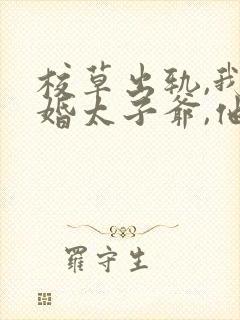 校草出轨,我
婚太子爷,他
罗守生